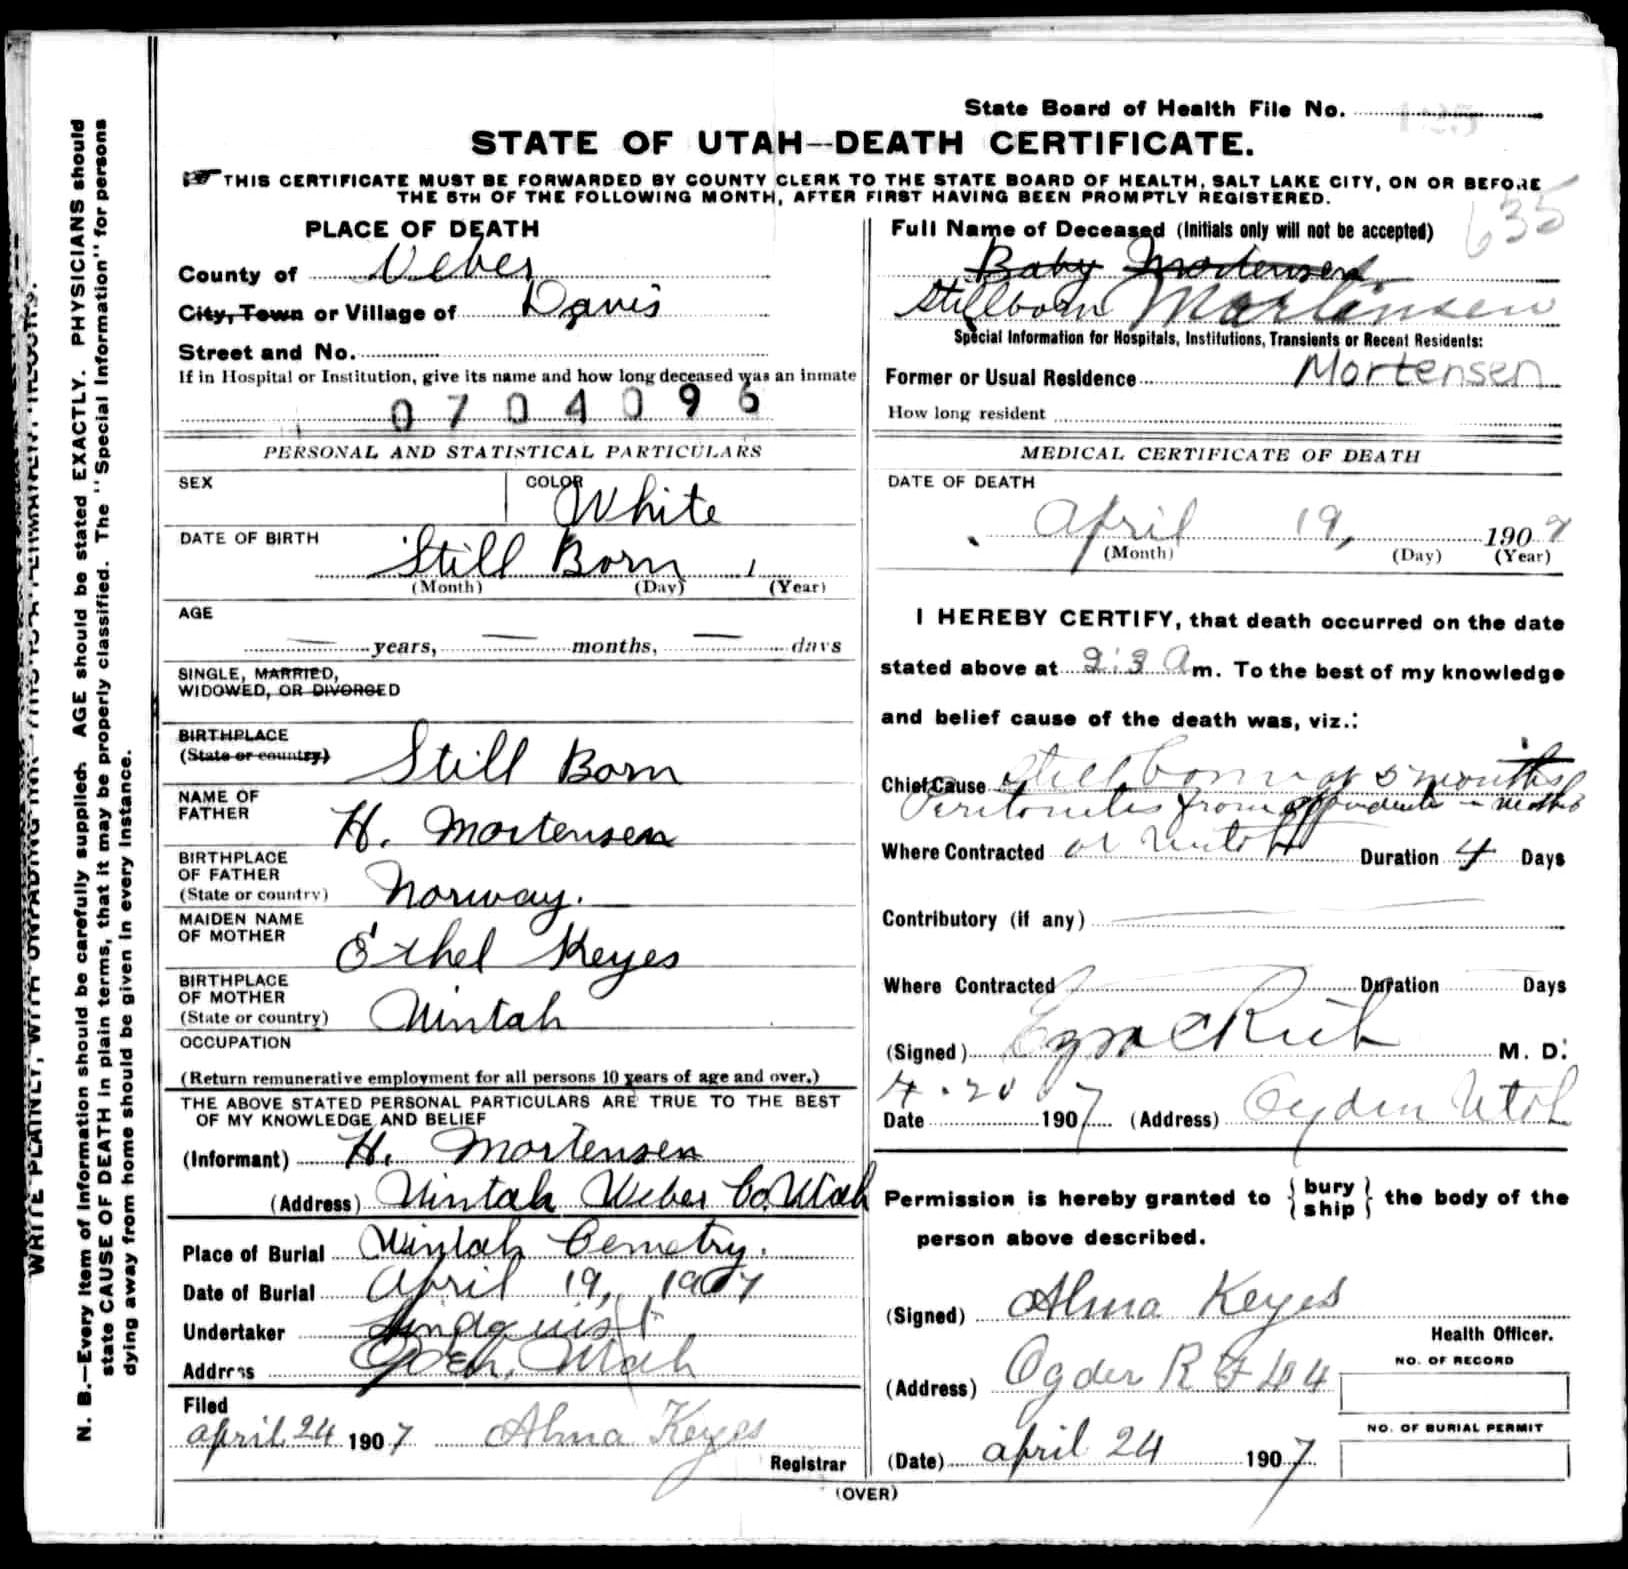 State Board of Health File No.
STATE OF UTAH—DEATH CERTIFICATE.
THIS CERTIFICATE MUST BE FORWARDED BY COUNTY CLERK TO THE STATE BOARD OF HEALTH, SALT LAKE CITY, ON OR BEFORE
THE 5TH OF THE FOLLOWING MONTH, AFTER FIRST HAVING BEEN PROMPTLY REGISTERED.
635
PLACE OF DEATH
County of Weber
City, Town or Village of Davis
Street and No.
If in Hospital or Institution, give its name and how long deceased was an inmate
0704096
PERSONAL AND STATISTICAL PARTICULARS
SEX
COLOR White
DATE OF BIRTH
Still Born
(Month) (Day) (Year)
AGE
years, months, days
SINGLE, MARRIED,
WIDOWED, OR DIVORCED
BIRTHPLACE
(State or country) Still Born
NAME OF
FATHER H. Mortensen
BIRTHPLACE
OF FATHER
(State or country) Norway.
MAIDEN NAME
OF MOTHER Ethel Keyes
BIRTHPLACE
OF MOTHER
(State or country) Uintah
OCCUPATION
(Return remunerative employment for all persons 10 years of age and over.)
THE ABOVE STATED PERSONAL PARTICULARS ARE TRUE TO THE BEST
OF MY KNOWLEDGE AND BELIEF
(Informant) H. Mortensen
(Address) Uintah Weber Co. Utah
Place of Burial Uintah Cemetry.
Date of Burial April 19, 1907
Undertaker Lindquist
Address Ogden, Utah
Filed
april 24 1907 Alma Keyes
Registrar
Full Name of Deceased (Initials only will not be accepted)
Baby Mortensen
Stillborn Mortensen
Special Information for Hospitals, Institutions, Transients or Recent Residents:
Former or Usual Residence Mortensen
How long resident
MEDICAL CERTIFICATE OF DEATH
DATE OF DEATH
April 19, 1907
(Month) (Day) (Year)
I HEREBY CERTIFY, that death occurred on the date
stated above at A m. To the best of my knowledge
and belief cause of the death was, viz.:
Chief Cause Still born at 5 months
Peritonitis from in mother
Where Contracted Duration 4 Days
Contributory (if any)
Where Contracted Duration Days
(Signed) Ezra C Rich M. D.
4-20
Date 1907 (Address) Ogden Utah
Permission is hereby granted to { bury ship } the body of the
person above described.
(Signed) Alma Keyes
Health Officer.
(Address) Ogden R F 44
NO. OF RECORD
NO. OF BURIAL PERMIT
(Date) april 24 1907
(OVER)
N. B.—Every item of information should be carefully supplied. AGE should be stated EXACTLY. PHYSICIANS should
state CAUSE OF DEATH in plain terms, that it may be properly classified. The "Special Information" for persons
dying away from home should be given in every instance.